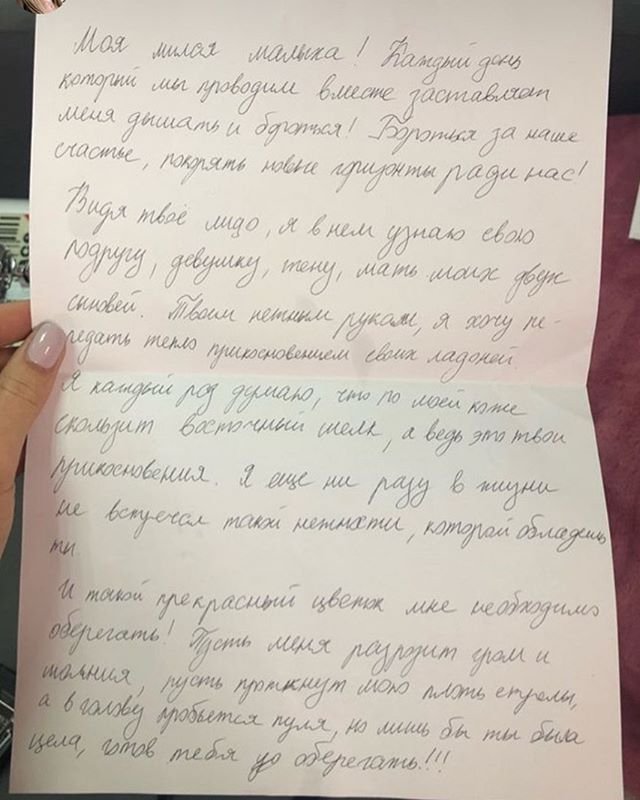 Моя милая малыха! Каждый день
который мы проводим вместе заставляет
меня дышать и бороться! Бороться за наше
счастье, покорять новые горизонты ради нас!
Видя твоё лицо, я в нем узнаю свою
подругу, девушку, жену, мать моих двух
сыновей. Твоим нежным рукам, я хочу пе-
редать тепло прикосновением своих ладоней.
Я каждый раз думаю, что по моей коже
скользит восточный шелк, а ведь это твои
прикосновения. Я еще ни разу в жизни
не встречал такой нежности, которой обладаешь
ты
И такой прекрасный цветок мне необходимо
оберегать! Пусть меня разразит гром и
молния, пусть проткнут мою плоть стрелы,
а в голову пробьется пуля, но лишь бы ты была
цела, готов тебя оберегать!!!